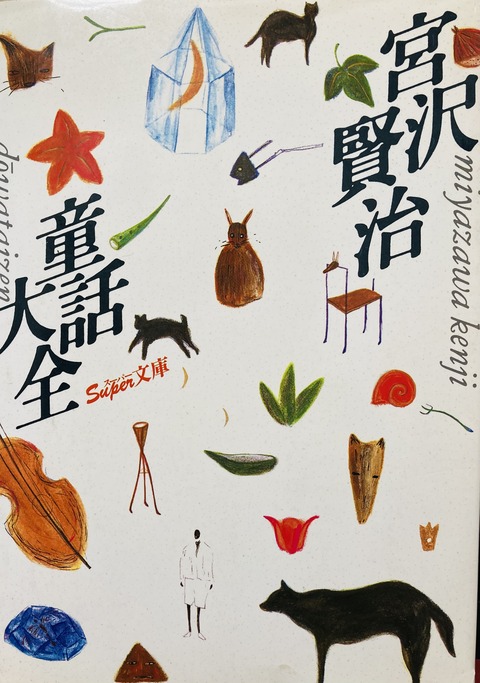 宮沢
賢治
miyazawa kenji
童話
大全
dōwataizen
スーパー
Super文庫